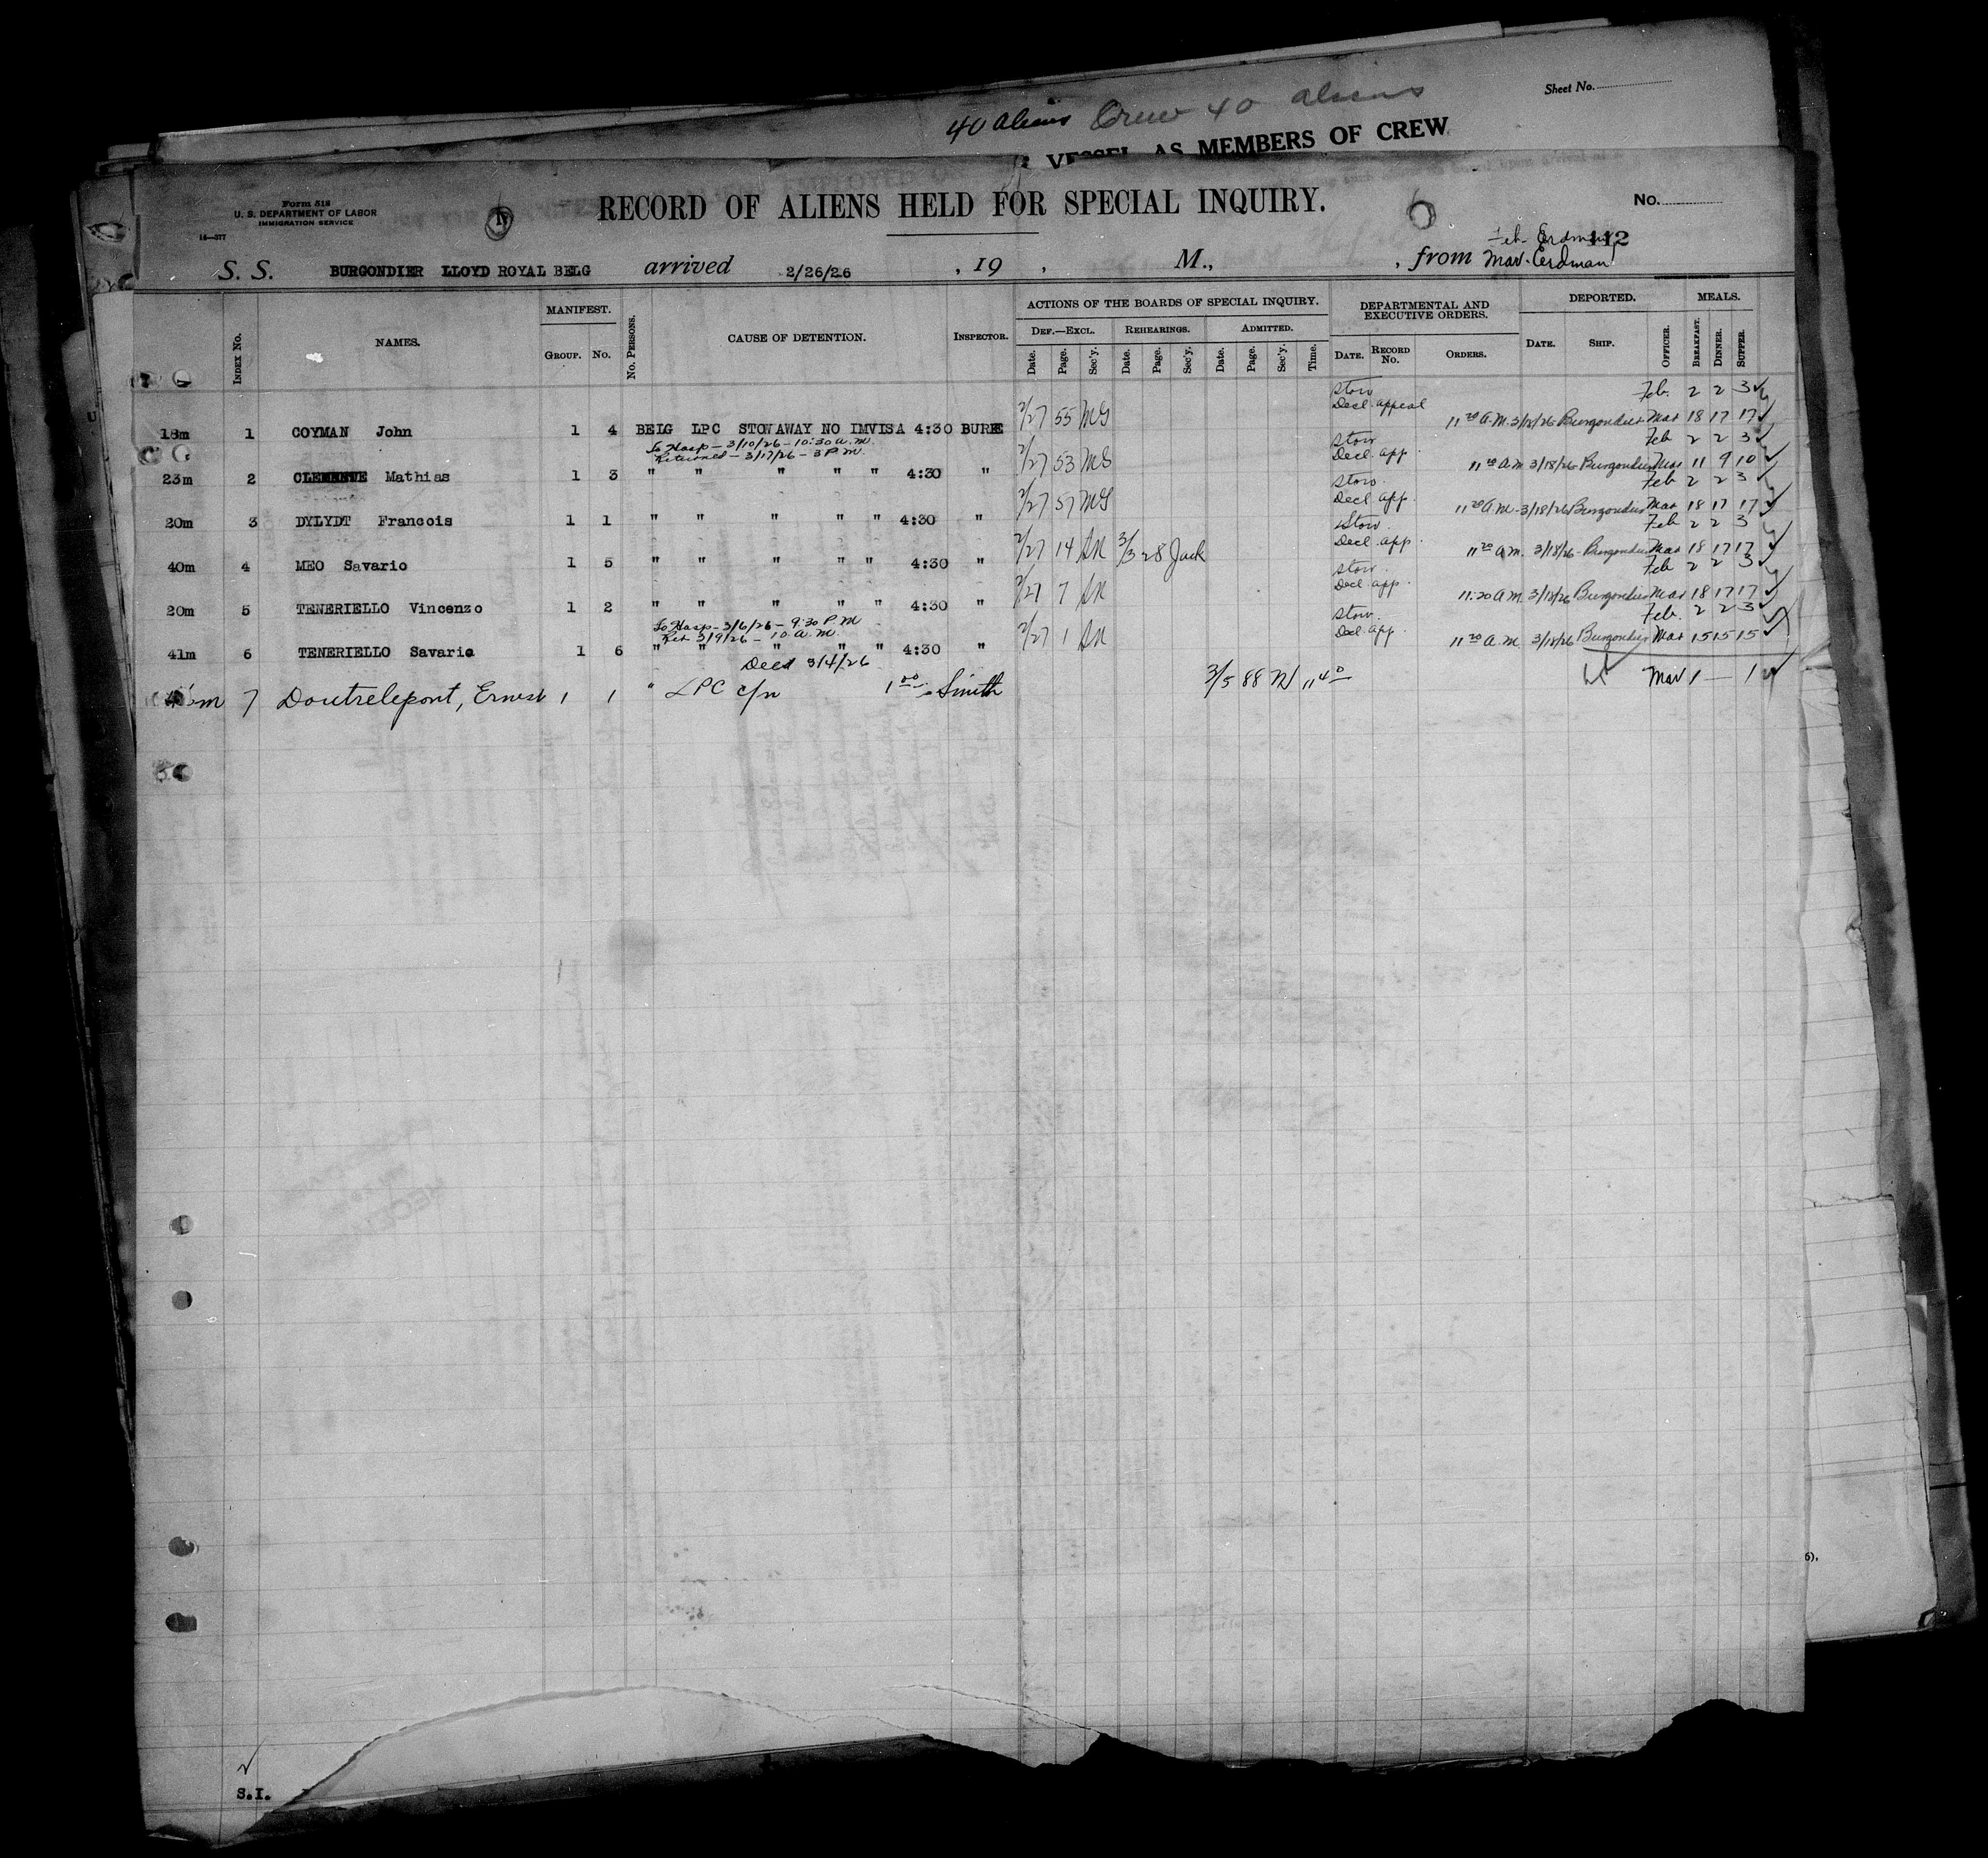 Sheet No.
40 aliens Crew 40 aliens
VESSEL AS MEMBERS OF CREW
Form 518
U. S. DEPARTMENT OF LABOR
IMMIGRATION SERVICE
16—577
RECORD OF ALIENS HELD FOR SPECIAL INQUIRY.
6
No.
112
Feb. Erdman
S. S. BURGONDIER LLOYD ROYAL BELG arrived 2/26/26 , 19 , M., , from Mar. Erdman
INDEX No. NAMES. MANIFEST. GROUP. No. No. PERSONS. CAUSE OF DETENTION. INSPECTOR. ACTIONS OF THE BOARDS OF SPECIAL INQUIRY. DEPARTMENTAL AND EXECUTIVE ORDERS. DEPORTED. MEALS.
DEF.—EXCL. REHEARINGS. ADMITTED.
Date. Page. Sec'y. Date. Page. Sec'y. Date. Page. Sec'y. Time. DATE. RECORD No. ORDERS. DATE. SHIP. OFFICER. BREAKFAST. DINNER. SUPPER.
Stow Feb. 2 2 3
Decl. appeal
18m 1 COYMAN John 1 4 BELG LPC STOWAWAY NO IMVISA 4:30 BURKE 2/27 55 MG 11 20 A.M. 3/18/26 Burgondier Mar 18 17 17
To Hosp - 3/10/26 - 10:30 a.m.
Returned - 3/17/26 - 3 P.M.
Stow Feb 2 2 3
Decl. app.
23m 2 Mathias 1 3 " " " " " 4:30 " 2/27 53 MG 11 20 a.m 3/18/26 Burgondier Mar 11 9 10
Stow. Feb 2 2 3
Decl. app.
20m 3 DYLYDT Francois 1 1 " " " " " 4:30 " 2/27 57 MG 11 20 a.m. 3/18/26 Burgondier Mar 18 17 17
Stow. Feb 2 2 3
Decl. app.
40m 4 MEO Savario 1 5 " " " " " 4:30 " 2/27 14 3/3 28 Jack 11 20 a.m. 3/18/26 Burgondier Mar 18 17 17
Stow. Feb 2 2 3
Decl. app.
20m 5 TENERIELLO Vincenzo 1 2 " " " " " 4:30 " 2/27 7 11:20 a.m. 3/18/26 Burgondier Mar 18 17 17
To Hosp - 3/6/26 - 9:30 P.M
Ret 3/9/26 - 10 a.m.
Stow. Feb. 2 2 3
Decl. app.
41m 6 TENERIELLO Savario 1 6 " " " " " 4:30 " 2/27 1 11 20 a.m 3/18/26 Burgondier Mar 15 15 15
3/4/26
m 7 Doutrelepont, Ernest 1 1 " LPC c/n 1 00 Smith 3/5 88 N 11 40 Mar 1 — 1
S.I.